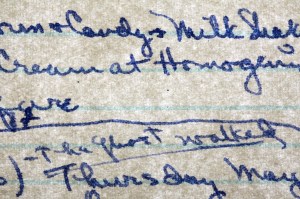 Candy + Milk Shak
Cream at Homogeni
- The Ghost walked
) Thursday May